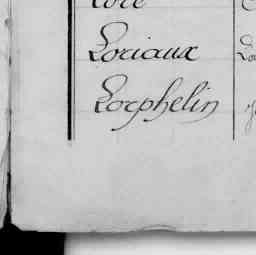 Loriaux
Lorphelin